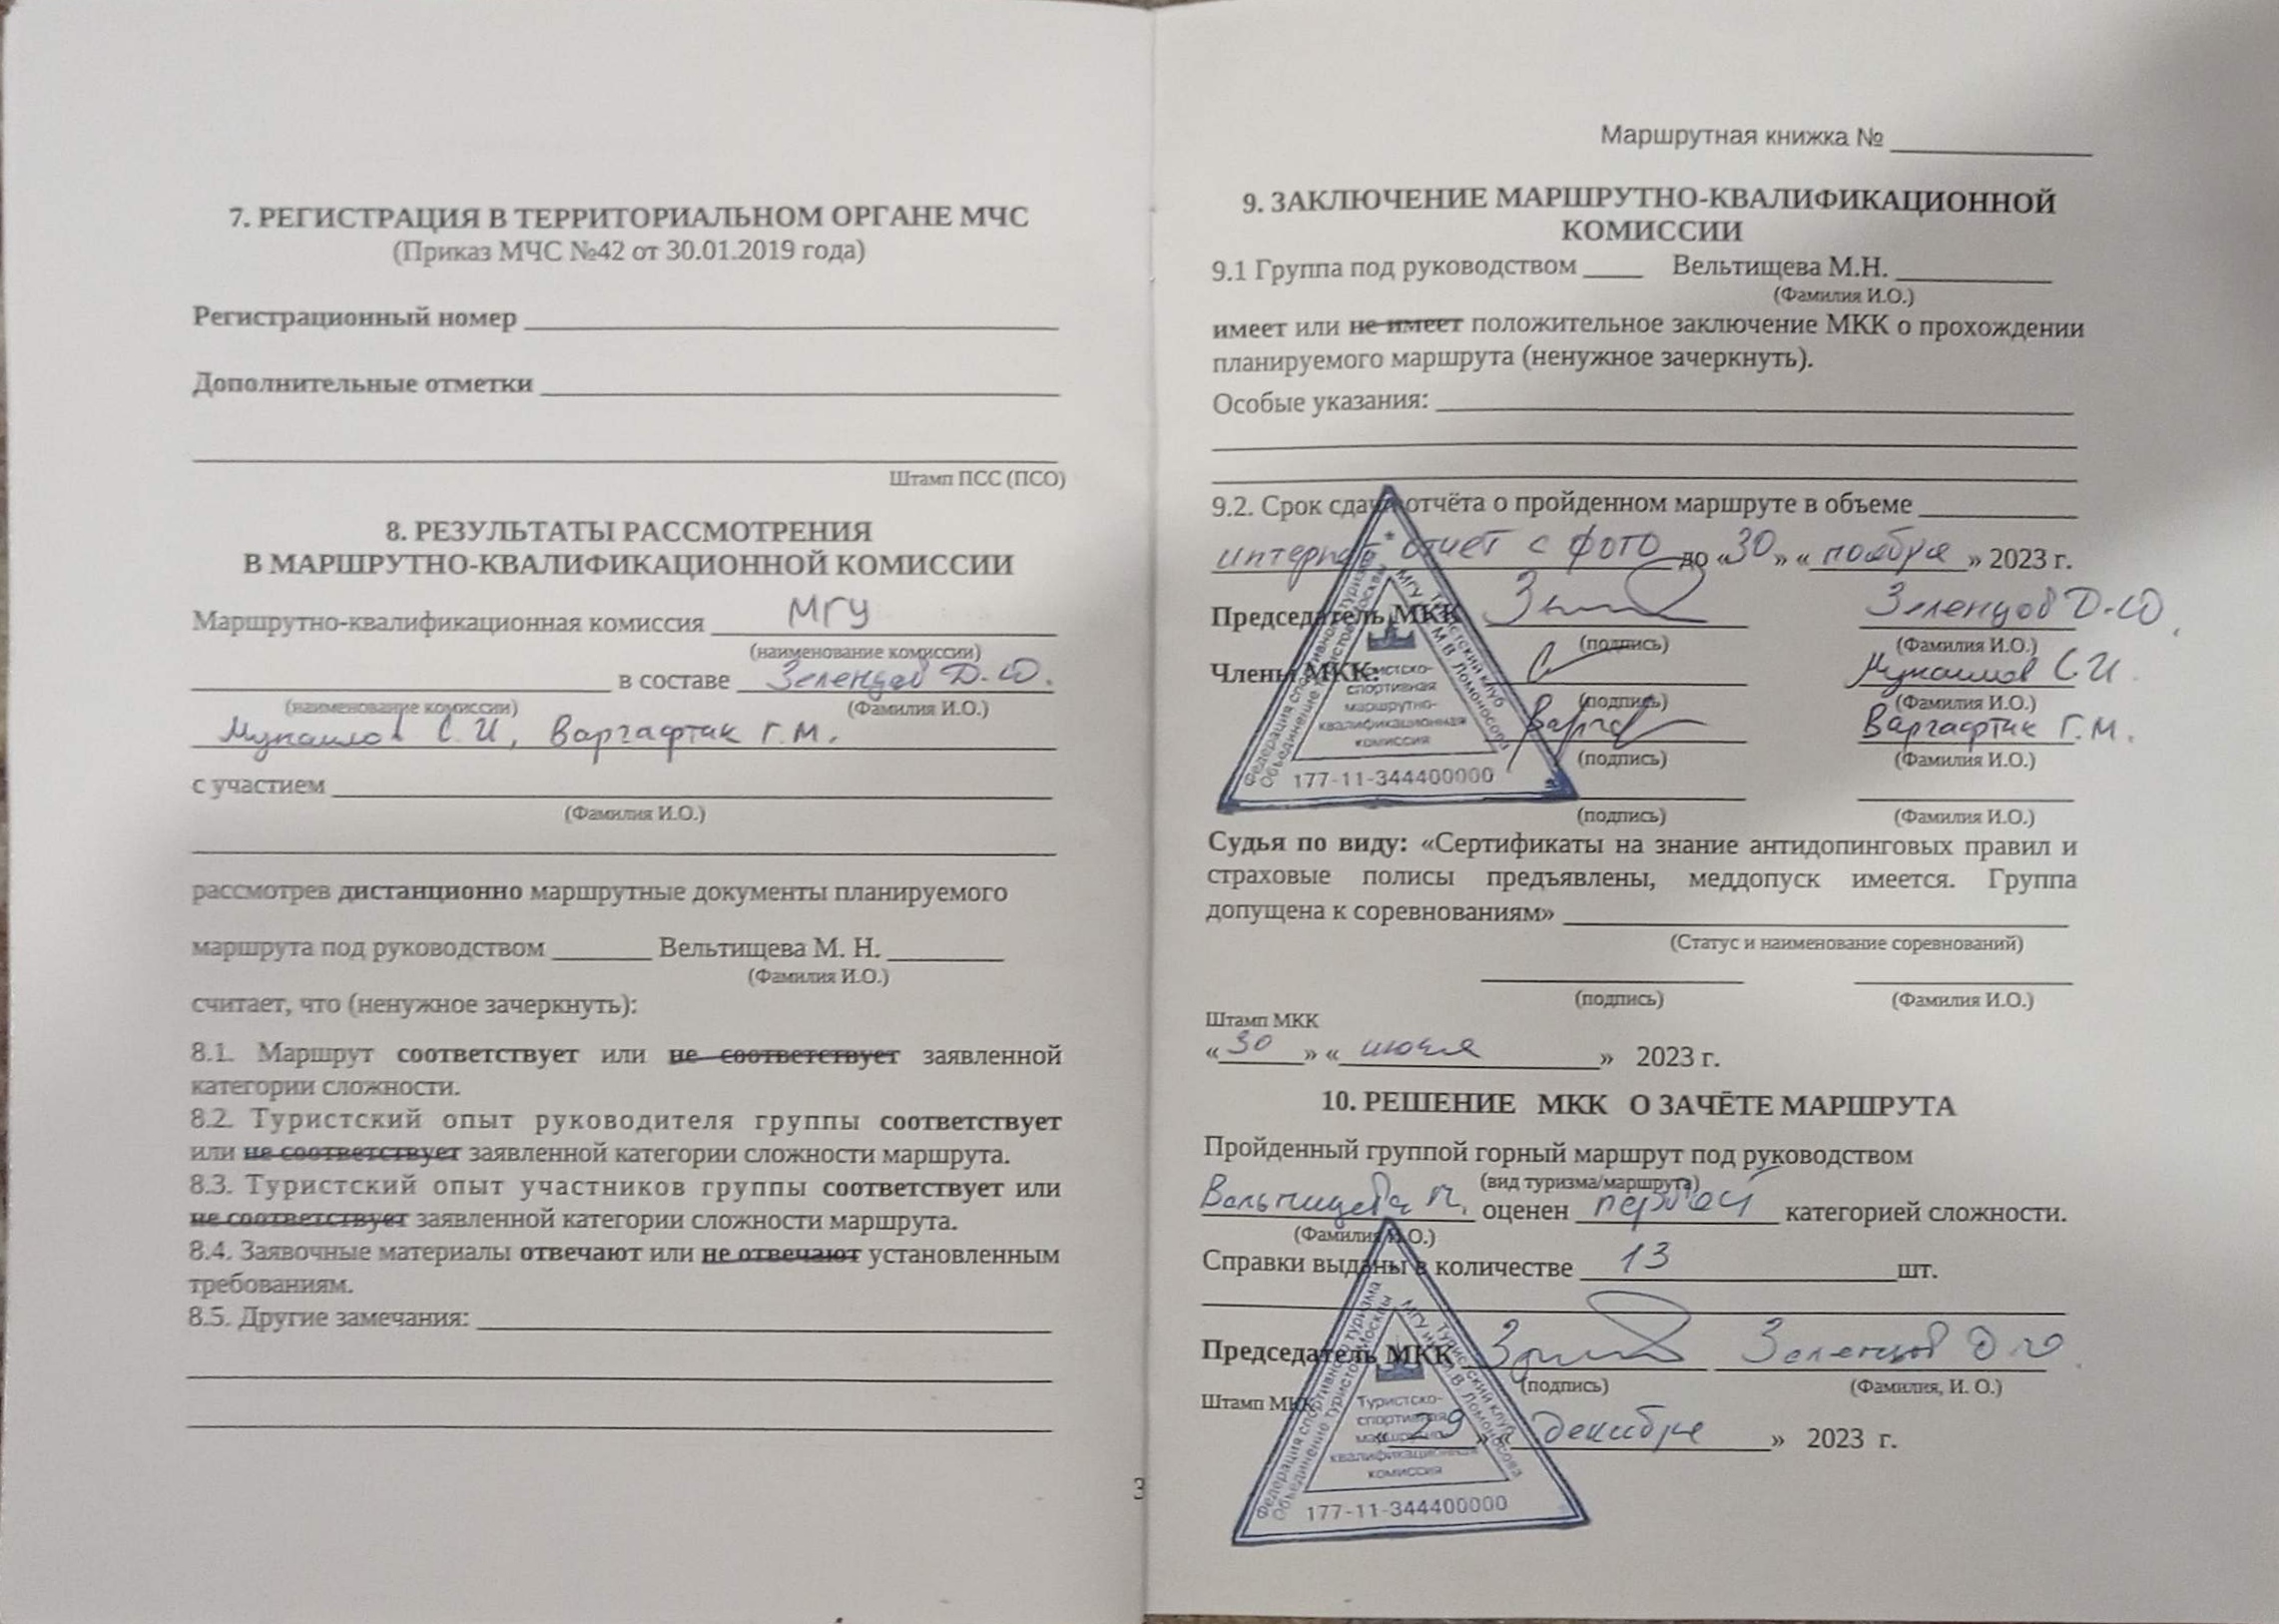 7. РЕГИСТРАЦИЯ В ТЕРРИТОРИАЛЬНОМ ОРГАНЕ МЧС
(Приказ МЧС №42 от 30.01.2019 года)
Регистрационный номер
Дополнительные отметки
Штамп ПСС (ПСО)
8. РЕЗУЛЬТАТЫ РАССМОТРЕНИЯ
В МАРШРУТНО-КВАЛИФИКАЦИОННОЙ КОМИССИИ
Маршрутно-квалификационная комиссия МГУ
(наименование комиссии)
в составе Зеленцов Д.Ю.
(наименование комиссии) (Фамилия И.О.)
С.И, Варгафтик Г.М.
с участием
(Фамилия И.О.)
рассмотрев дистанционно маршрутные документы планируемого
маршрута под руководством Вельтищева М. Н.
(Фамилия И.О.)
считает, что (ненужное зачеркнуть):
8.1. Маршрут соответствует или не соответствует заявленной
категории сложности.
8.2. Туристский опыт руководителя группы соответствует
или не соответствует заявленной категории сложности маршрута.
8.3. Туристский опыт участников группы соответствует или
не соответствует заявленной категории сложности маршрута.
8.4. Заявочные материалы отвечают или не отвечают установленным
требованиям.
8.5. Другие замечания:
3
Маршрутная книжка №
9. ЗАКЛЮЧЕНИЕ МАРШРУТНО-КВАЛИФИКАЦИОННОЙ
КОМИССИИ
9.1 Группа под руководством Вельтищева М.Н.
(Фамилия И.О.)
имеет или не имеет положительное заключение МКК о прохождении
планируемого маршрута (ненужное зачеркнуть).
Особые указания:
9.2. Срок сдачи отчёта о пройденном маршруте в объеме
интернет отчет с фото до «30» «ноября» 2023 г.
Председатель МКК Зеленцов Д.Ю.
(подпись) (Фамилия И.О.)
Члены МКК: С.И.
(подпись) (Фамилия И.О.)
Варгафтик Г.М.
(подпись) (Фамилия И.О.)
(подпись) (Фамилия И.О.)
Федерация спортивного туризма
Объединение туристов Москвы
Туристский клуб
МГУ им. М.В. Ломоносова
Туристско-
спортивная
маршрутно-
квалификационная
комиссия
177-11-344400000
Судья по виду: «Сертификаты на знание антидопинговых правил и
страховые полисы предъявлены, меддопуск имеется. Группа
допущена к соревнованиям»
(Статус и наименование соревнований)
(подпись) (Фамилия И.О.)
Штамп МКК
«30» « » 2023 г.
10. РЕШЕНИЕ МКК О ЗАЧЁТЕ МАРШРУТА
Пройденный группой горный маршрут под руководством
(вид туризма/маршрута)
Вельтищева М. оценен первой категорией сложности.
(Фамилия И.О.)
Справки выданы в количестве 13 шт.
Председатель МКК Зеленцов Д.Ю.
(подпись) (Фамилия, И. О.)
Штамп МКК
«29» «декабря» 2023 г.
Федерация спортивного туризма
Объединение туристов Москвы
Туристский клуб
МГУ им. М.В. Ломоносова
Туристско-
спортивная
маршрутно-
квалификационная
комиссия
177-11-344400000